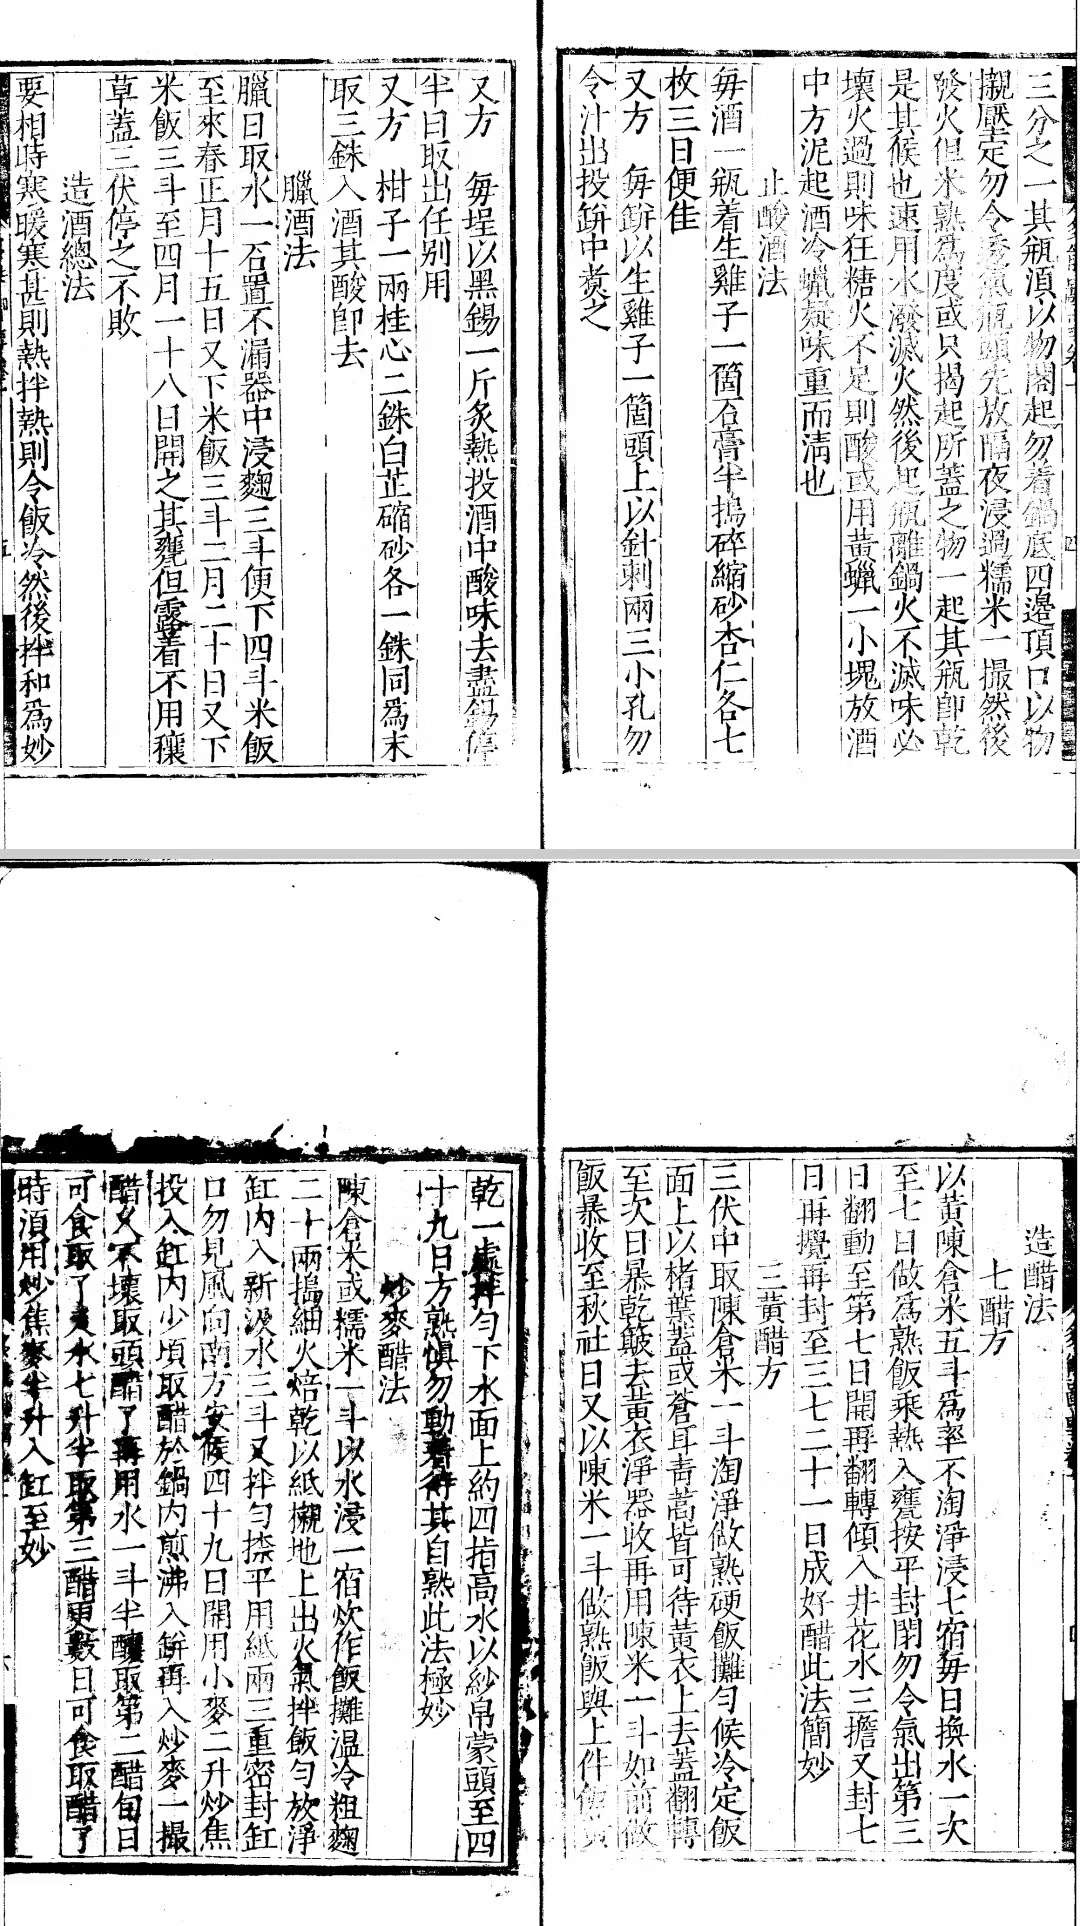 三分之一其瓶湏以物閣起勿着鍋底四邉頂口以物
襯壓定勿令透氣瓶頭先放隔夜浸過糯米一撮然後
發火但米熟爲度或只揭起所蓋之物一起其瓶卽乾
是其候也速用水潑滅火然後起瓶離鍋火不滅味必
壞火過則味狂糖火不足則酸或用黃蠟一小塊放酒
中方泥起酒冷蠟凝味重而淸也
止酸酒法
每酒一瓶着生雞子一箇石膏半搗碎縮砂杏仁各七
枚三日便佳
又方　每缾以生雞子一箇頭上以針刺兩三小孔勿
令汁出投缾中煑之
又方　每埕以黑錫一斤炙熱投酒中酸味去盡錫停
半日取出任别用
又方　柑子一兩桂心二銖白芷縮砂各一銖同爲末
取三銖入酒其酸卽去
臘酒法
臘日取水一石置不漏器中浸麴三斗便下四斗米飯
至來春正月十五日又下米飯三斗二月二十日又下
米飯三斗至四月一十八日開之其甕但露着不用穰
草蓋三伏停之不敗
造酒總法
要相時寒暖寒甚則熱拌熱則令飯冷然後拌和爲妙
造醋法
七醋方
以黃陳倉米五斗爲率不淘淨浸七宿每日換水一次
至七日做爲熟飯乘熱入甕按平封閉勿令氣出第三
日翻動至第七日開再翻轉傾入井花水三擔又封七
日再攪再封至三七二十一日成好醋此法簡妙
三黃醋方
三伏中取陳倉米一斗淘淨做熟硬飯攤勻候冷定飯
面上以楮葉蓋或蒼耳靑蒿皆可待黃衣上去蓋翻轉
至次日暴乾皷去黃衣淨器收再用陳米一斗如前做
飯暴收至秋社日又以陳米一斗做熟飯與上件飯黃
乾一處拌勻下水面上約四指高水以紗帛蒙頭至四
十九日方熟愼勿動着待其自熟此法極妙
炒麥醋法
陳倉米或糯米一斗以水浸一宿炊作飯攤温冷粗麴
二十兩搗細火焙乾以紙襯地上出火氣拌飯勻放淨
缸内入新汲水三斗又拌勻捺平用紙兩三重密封缸
口勿見風向南方安候四十九日開用小麥二升炒焦
投入缸内少頃取醋於鍋内煎沸入缾再入炒麥一撮
醋久不壞取頭醋了再用水一斗半釀取第二醋旬日
可食取了又水七升半取第三醋更數日可食取醋了
時湏用炒焦麥半升入缸至妙